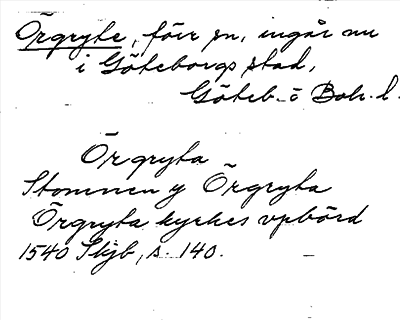 Örgryte, förr sn, ingår nu
i Göteborgs stad,
Göteb. o Boh. l.
Örgryta
Stommen y Örgryta
Örgryta kyrkes vpbörd
1540 Skjb, s. 140.